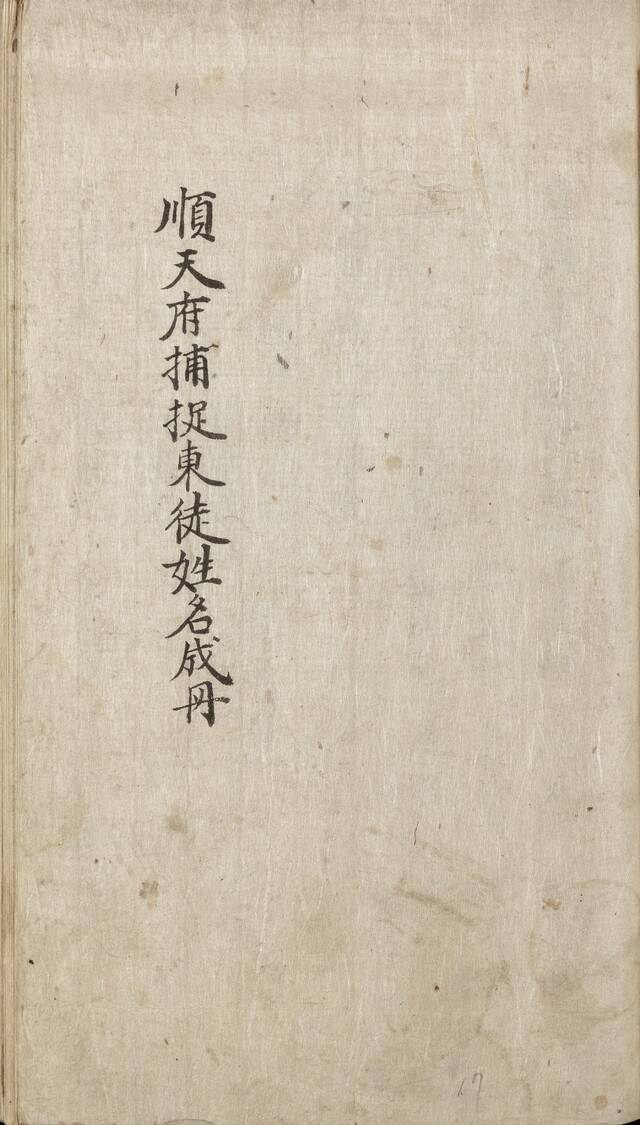 順天府捕捉東徒姓名成冊
17